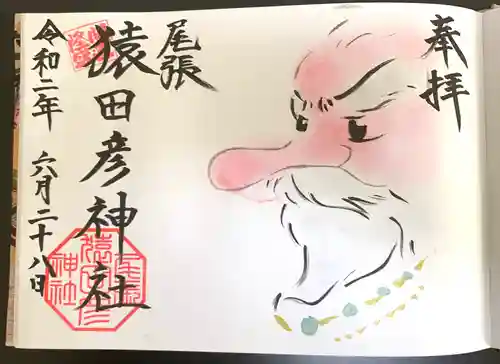 奉拝
尾張
猿田彦神社
令和二年 六月二十八日
尾張
猿田彦
神社